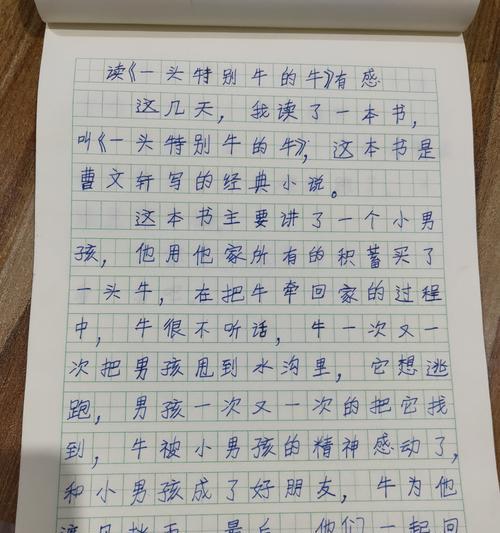 读《一头特别牛的牛》有感
这几天，我读了一本书，
叫《一头特别牛的牛》，这本书是
曹文轩写的经典小说。
这本书主要讲了一个小男
孩，他用他家所有的积蓄买了
一头牛，在把牛牵回家的过程
中，牛很不听话，牛一次又一
次把男孩甩到水沟里，它想逃
跑，男孩一次又一次的把它找
到，牛被小男孩的精神感动了，
和小男孩成了好朋友，牛为他
最后，他们一起回